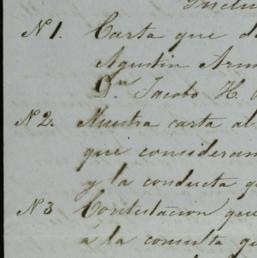 Inclu
N 1. Carta que d
Agustin Arm
Dn. Jacobo H.
N 2. Nuestra carta al
que consideram
y la conducta q
N 3 Contestacion que
á la consulta qu